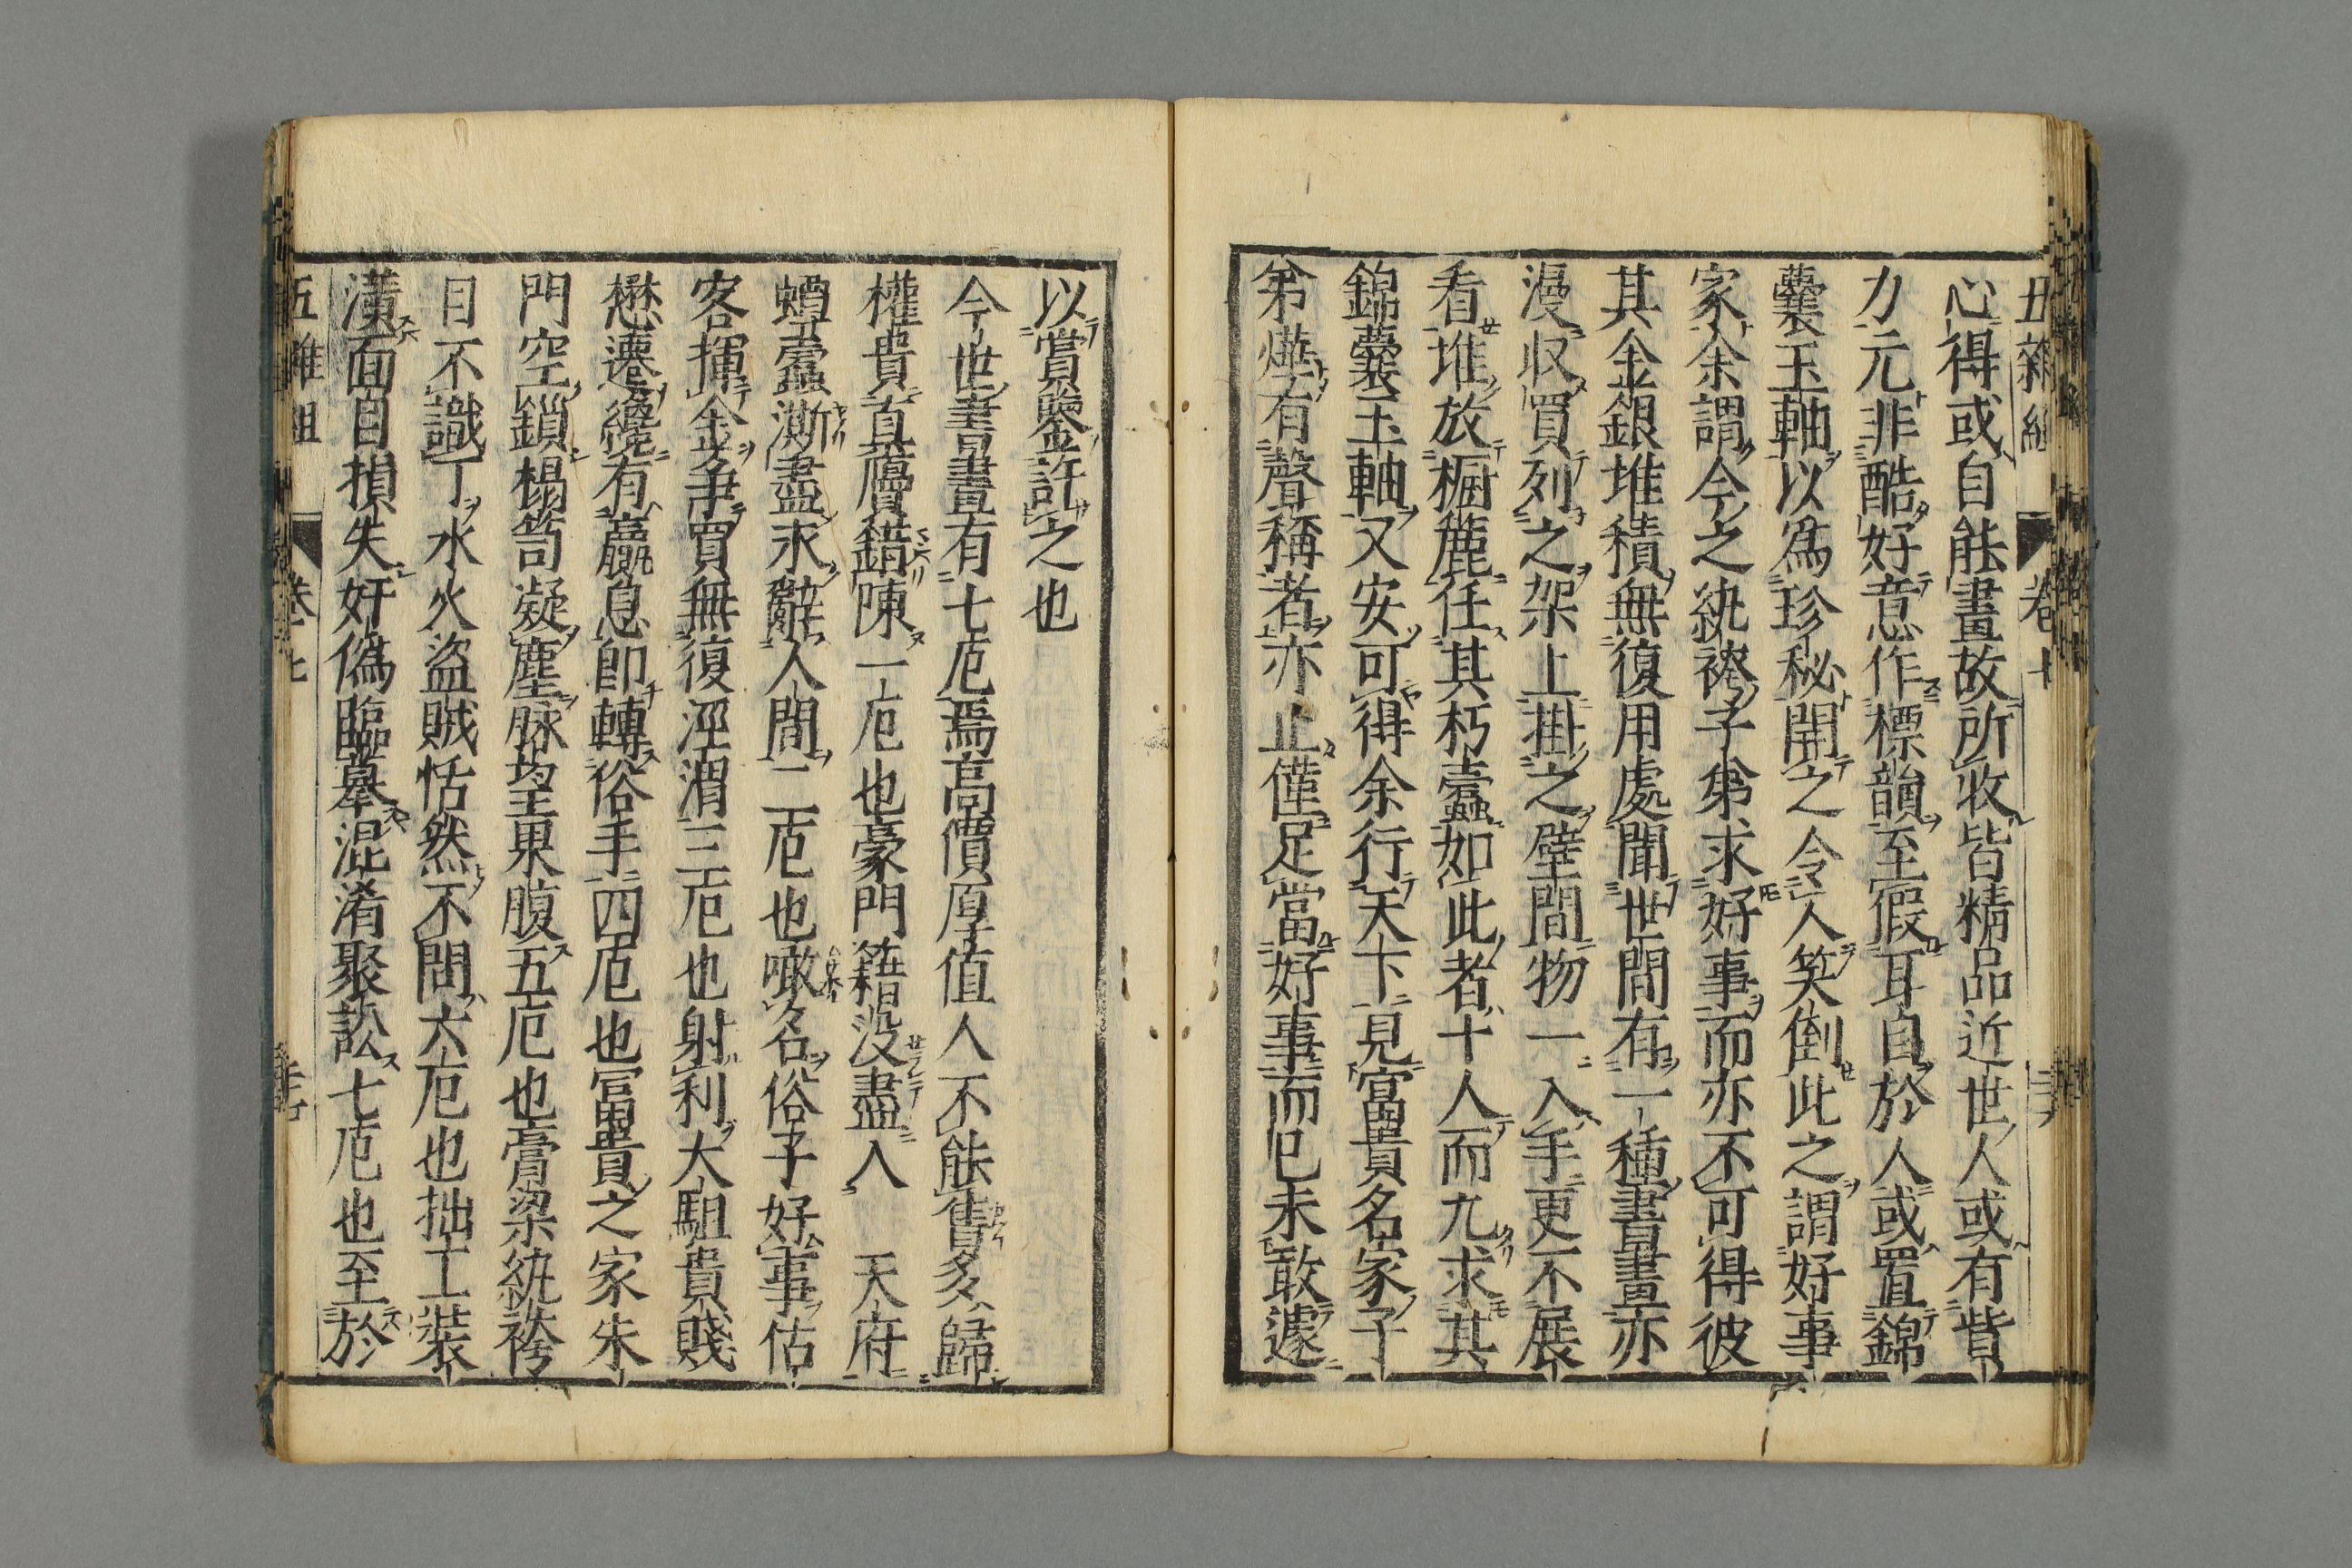 五雜組 卷七
心得或自能畫故所收皆精品近世人或有貲
力元非酷好意作標韻至假耳目於人或置錦
囊玉軸以爲珍秘開之令人笑倒此之謂好事
家余謂今之紈袴子弟求好事而亦不可得彼
其金銀堆積無復用處聞世間有一種書畫亦
漫收買列之架上掛之壁間物一入手更不展
看堆放橱簏任其朽蠹如此者十人而九求其
錦囊玉軸又安可得余行天下見富貴名家子
弟燁有聲稱者亦止僅足當好事而已未敢遽
以賞鑒許之也
今世書畫有七厄焉高價厚值人不能售多歸
權貴真贗錯陳一厄也豪門籍没盡入 天府
蟫蠹澌盡永辭人間二厄也噉名俗子好事估
客揮金爭買無復涇渭三厄也射利大駔貴賤
懋遷纔有贏息卽轉俗手四厄也富貴之家朱
門空鎖榻笥凝塵脉望果腹五厄也膏粱紈袴
目不識丁水火盜賊恬然不問六厄也拙工裝
潢面目損失奸僞臨摹混淆聚訟七厄也至於
五雜組 卷七